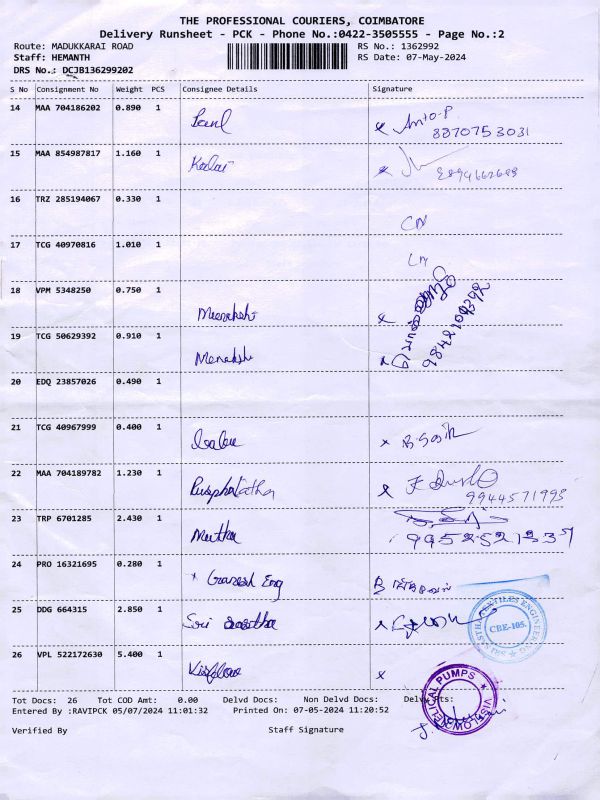 THE PROFESSIONAL COURIERS, COIMBATORE
Delivery Runsheet - PCK - Phone No.:0422-3505555 - Page No.:2
Route: MADUKKARAI ROAD RS No.: 1362992
Staff: HEMANTH RS Date: 07-May-2024
DRS No.: DCJB136299202
S No Consignment No Weight PCS Consignee Details Signature
14 MAA 704186202 0.890 1 Paul Anto.P
8870753031
15 MAA 854987817 1.160 1 Kalai
16 TRZ 285194067 0.330 1 CN
17 TCG 40970816 1.010 1
18 VPM 5348250 0.750 1 Meenakshi
19 TCG 50629392 0.910 1 Menakshi 9842109392
20 EDQ 23857026 0.490 1
21 TCG 40967999 0.400 1
22 MAA 704189782 1.230 1 Pusphalatha
9944571993
23 TRP 6701285 2.430 1 Muthu 9952521337
24 PRO 16321695 0.280 1 Ganesh Eng
25 DDG 664315 2.850 1 Sri Sastha
SRI SASTHA TEXTILES ENGINEERING
CBE-105.
26 VPL 522172630 5.400 1
VISLOWHELICAL PUMPS
Tot Docs: 26 Tot COD Amt: 0.00 Delvd Docs: Non Delvd Docs: Delvy Pts:
Entered By :RAVIPCK 05/07/2024 11:01:32 Printed On: 07-05-2024 11:20:52
Verified By Staff Signature